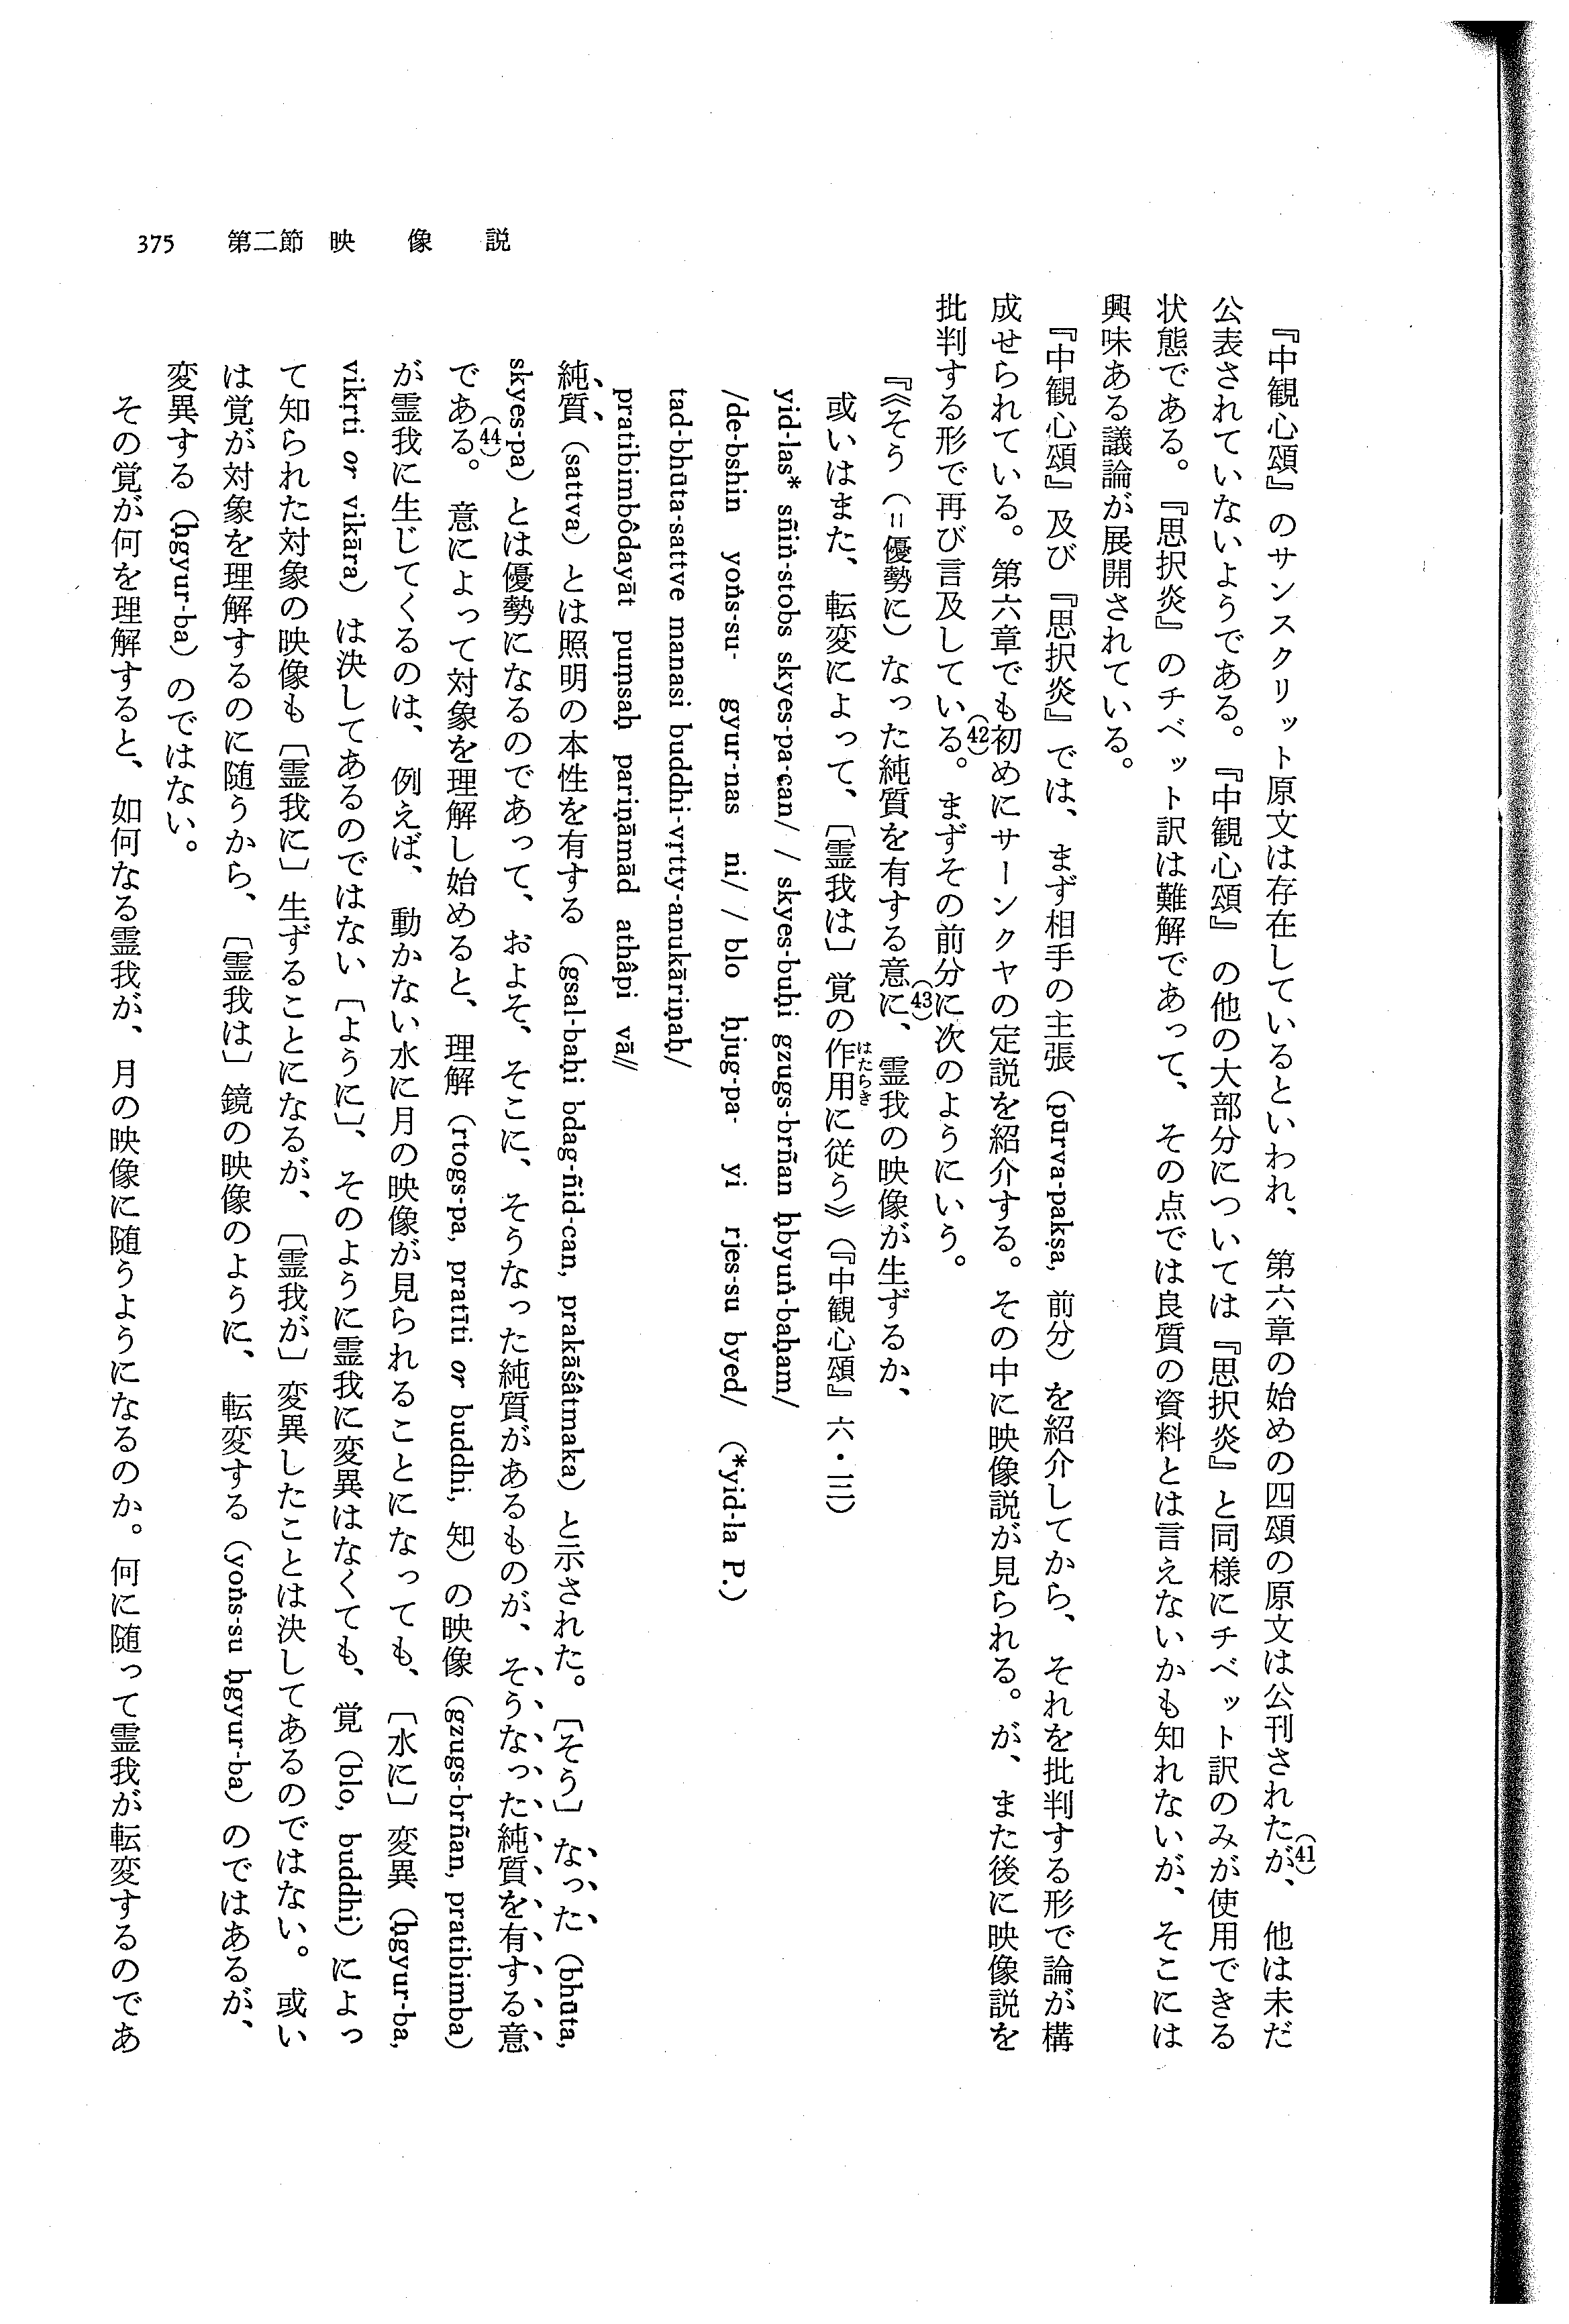 375　第二節　映　像　説
『中観心頌』のサンスクリット原文は存在しているといわれ、第六章の始めの四頌の原文は公刊されたが、(41)他は未だ
公表されていないようである。『中観心頌』の他の大部分については『思択炎』と同様にチベット訳のみが使用できる
状態である。『思択炎』のチベット訳は難解であって、その点では良質の資料とは言えないかも知れないが、そこには
興味ある議論が展開されている。
『中観心頌』及び『思択炎』では、まず相手の主張（pūrva-pakṣa, 前分）を紹介してから、それを批判する形で論が構
成せられている。第六章でも初めにサーンクヤの定説を紹介する。その中に映像説が見られる。が、また後に映像説を
批判する形で再び言及している。(42)まずその前分に次のようにいう。
『《そう（＝優勢に）なった純質を有する意に、(43)霊我の映像が生ずるか、
或いはまた、転変によって、〔霊我は〕覚の作用（はたらき）に従う》（『中観心頌』六・三）
yid-las* sñiṅ-stobs skyes-pa-can/ / skyes-buḥi gzugs-brñan ḥbyuṅ-baḥam/
/de-bshin yoṅs-su- gyur-nas ni/ / blo ḥjug-pa- yi rjes-su byed/ (*yid-la P.)
tad-bhūta-sattve manasi buddhi-vṛtty-anukāriṇaḥ/
pratibimbôdayāt puṃsaḥ pariṇāmād athâpi vā//
純質（sattva）とは照明の本性を有する（gsal-baḥi bdag-ñid-can, prakāśâtmaka）と示された。〔そう〕なった（bhūta,
skyes-pa）とは優勢になるのであって、およそ、そこに、そうなった純質があるものが、そうなった純質を有する意
である。(44)意によって対象を理解し始めると、理解（rtogs-pa, pratīti or buddhi, 知）の映像（gzugs-brñan, pratibimba）
が霊我に生じてくるのは、例えば、動かない水に月の映像が見られることになっても、〔水に〕変異（ḥgyur-ba,
vikṛti or vikāra）は決してあるのではない〔ように〕、そのように霊我に変異はなくても、覚（blo, buddhi）によっ
て知られた対象の映像も〔霊我に〕生ずることになるが、〔霊我が〕変異したことは決してあるのではない。或い
は覚が対象を理解するのに随うから、〔霊我は〕鏡の映像のように、転変する（yoṅs-su ḥgyur-ba）のではあるが、
変異する（ḥgyur-ba）のではない。
その覚が何を理解すると、如何なる霊我が、月の映像に随うようになるのか。何に随って霊我が転変するのであ